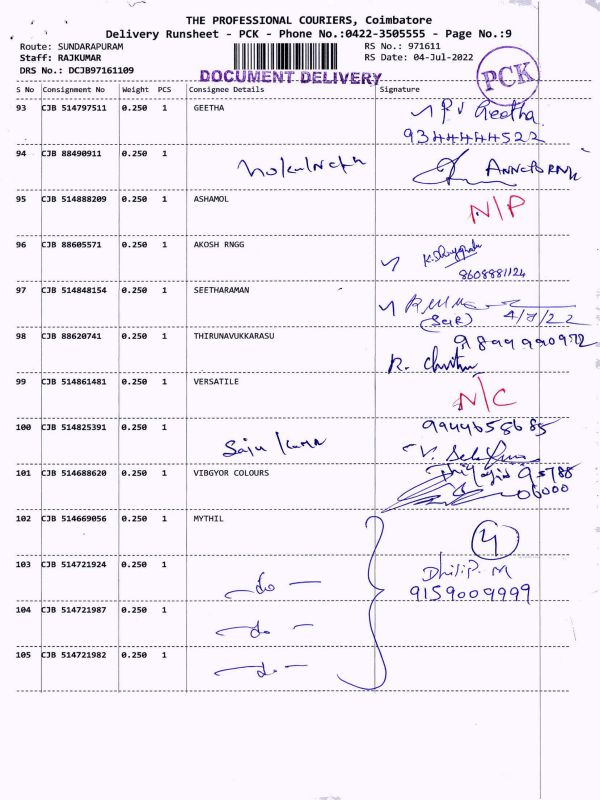 THE PROFESSIONAL COURIERS, Coimbatore
Delivery Runsheet - PCK - Phone No.:0422-3505555 - Page No.:9
Route: SUNDARAPURAM RS No.: 971611
Staff: RAJKUMAR RS Date: 04-Jul-2022
DRS No.: DCJB97161109
DOCUMENT DELIVERY
PCK
S No Consignment No Weight PCS Consignee Details Signature
93 CJB 514797511 0.250 1 GEETHA Geetha
9344444522
94 CJB 88490911 0.250 1
95 CJB 514888209 0.250 1 ASHAMOL N/P
96 CJB 88605571 0.250 1 AKOSH RNGG
8608881124
97 CJB 514848154 0.250 1 SEETHARAMAN
4/7/22
98 CJB 88620741 0.250 1 THIRUNAVUKKARASU
99 CJB 514861481 0.250 1 VERSATILE N/C
100 CJB 514825391 0.250 1 9944658685
101 CJB 514688620 0.250 1 VIBGYOR COLOURS
102 CJB 514669056 0.250 1 MYTHIL 4
103 CJB 514721924 0.250 1 - do - Dhilip. M
9159009999
104 CJB 514721987 0.250 1 - do -
105 CJB 514721982 0.250 1 - do -